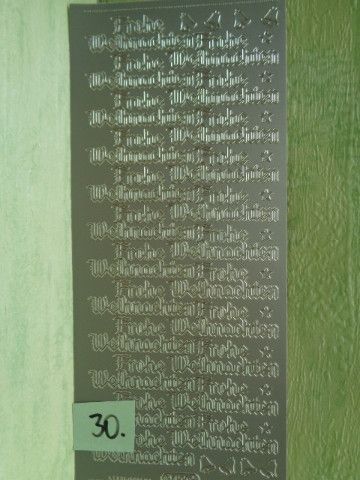 Frohe
Weihnachten Frohe
Frohe Weihnachten
Weihnachten Frohe
Frohe Weihnachten
Weihnachten Frohe
Frohe Weihnachten
Weihnachten Frohe
Frohe Weihnachten
Weihnachten Frohe
Frohe Weihnachten
Weihnachten Frohe
Frohe Weihnachten
Weihnachten Frohe
Frohe Weihnachten
Weihnachten Frohe
Frohe Weihnachten
Weihnachten Frohe
Frohe Weihnachten
Weihnachten Frohe
Frohe Weihnachten
Weihnachten Frohe
Frohe Weihnachten
Weihnachten
30.